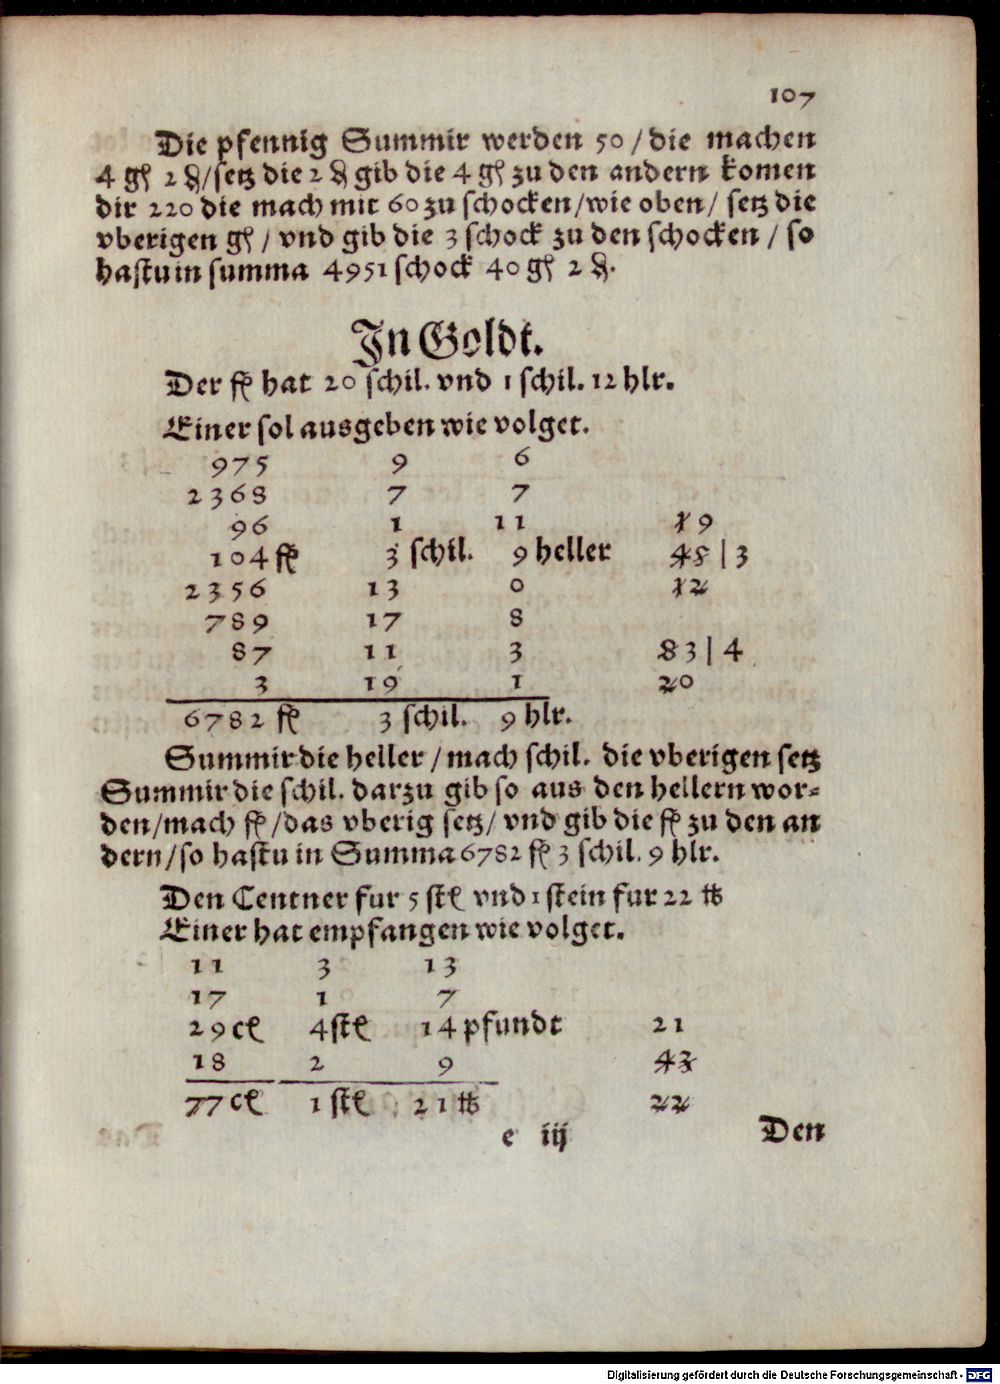 107
Die pfennig Summir werden 50 / die machen
4 gl 2 ₰/setz die 2 ₰ gib die 4 gl zu den andern komen
dir 220 die mach mit 60 zu schocken/wie oben/ setz die
vberigen gl / vnd gib die 3 schock zu den schocken / so
hastu in summa 4951 schock 40 gl 2 ₰.
In Goldt.
Der fl hat 20 schil. vnd 1 schil. 12 hlr.
Einer sol ausgeben wie volget.
975 9 6
2368 7 7
96 1 11 19
104 fl 3 schil. 9 heller 48 | 3
2356 13 0 12
789 17 8
87 11 3 83 | 4
3 19 1 20
6782 fl 3 schil. 9 hlr.
Summir die heller / mach schil. die vberigen setz
Summir die schil. darzu gib so aus den hellern wor=
den/mach fl /das vberig setz/ vnd gib die fl zu den an
dern/so hastu in Summa 6782 fl 3 schil. 9 hlr.
Den Centner fur 5 stė vnd 1 stein fur 22 ℔
Einer hat empfangen wie volget.
11 3 13
17 1 7
29 cė 4 stė 14 pfundt 21
18 2 9 43
77 cė 1 stė 21 ℔ 22
e iij Den
Digitalisierung gefördert durch die Deutsche Forschungsgemeinschaft - DFG